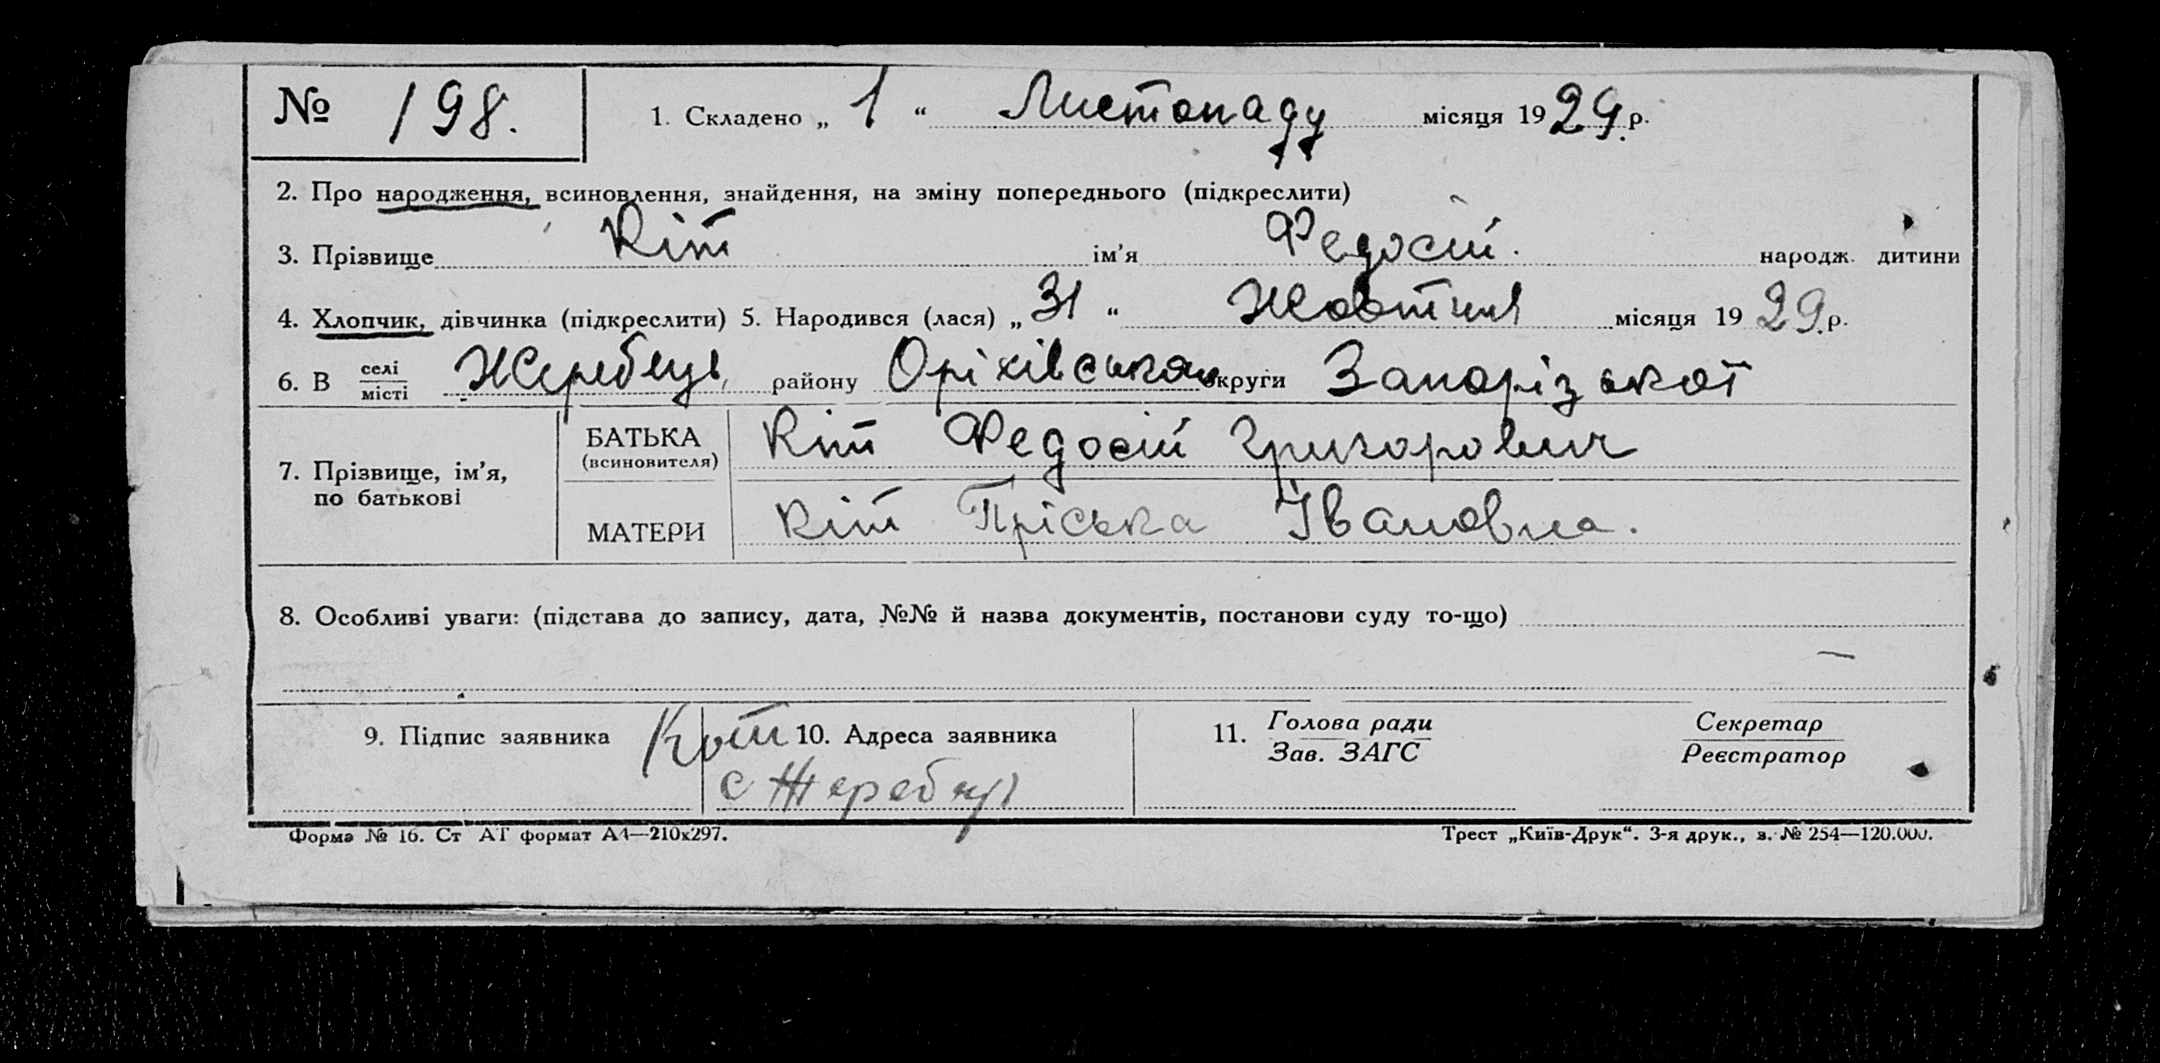 № 198. 1. Складено „ 1 “ Листопаду місяця 1929 р.
2. Про народження, всиновлення, знайдення, на зміну попереднього (підкреслити)
3. Прізвище Кіт ім’я Федосій. народж. дитини
4. Хлопчик, дівчинка (підкреслити) 5. Народився (лася) „ 31 “ Жовтня місяця 1929 р.
6. В селі
місті Жеребець, району Оріхівського округи Запорізької
7. Прізвище, ім’я,
по батькові
БАТЬКА
(всиновителя)
Кіт Федосій Григорович
МАТЕРИ Кіт Пріська Івановна.
8. Особливі уваги: (підстава до запису, дата, №№ й назва документів, постанови суду то-що)
9. Підпис заявника Кот 10. Адреса заявника
с Жеребец
11. Голова ради
Зав. ЗАГС
Секретар
Реєстратор
Форма № 16. Ст АТ формат А4—210х297. Трест „Київ-Друк“. 3-я друк., з. № 254—120.000.